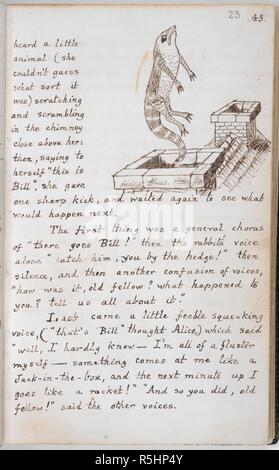 23 43.
heard a little
animal (she
couldn't guess
what sort it
was) scratching
and scrambling
in the chimney
close above her:
then, saying to
herself "this is
Bill", she gave
one sharp kick, and waited again to see what
would happen next.
The first thing was a general chorus
of "there goes Bill!" then the rabbit's voice
alone "catch him, you by the hedge!" then
silence, and then another confusion of voices,
"how was it, old fellow? what happened to
you? tell us all about it."
Last came a little feeble squeaking
voice, ("that's Bill" thought Alice,) which said
"well, I hardly know — I'm all of a fluster
myself — something comes at me like a
Jack-in-the-box, and the next minute up I
goes like a rocket!" "And so you did, old
fellow!" said the other voices.
alamy
Image ID: R5HP4Y
www.alamy.com